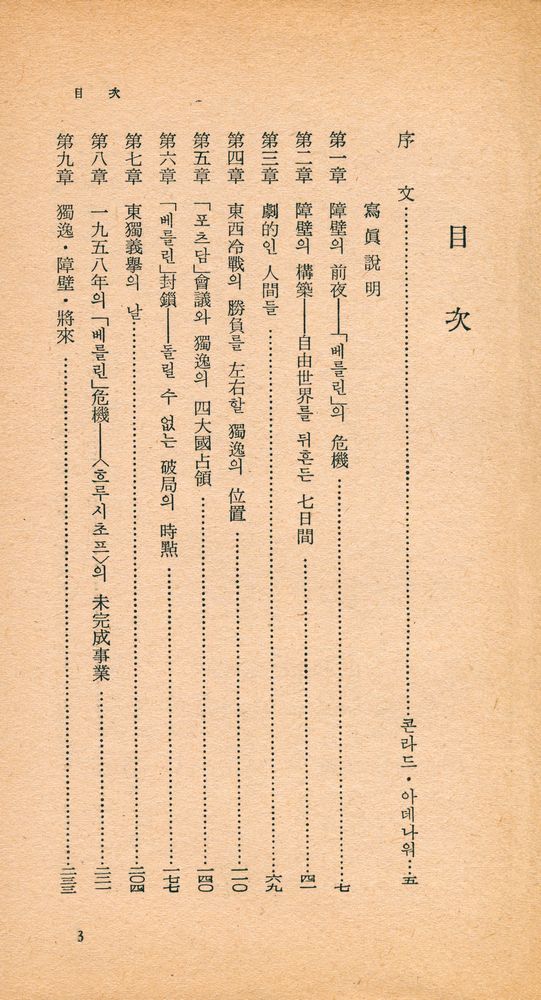 目次
序文……콘라드·아데나워…五
寫眞說明
第一章 障壁의 前夜——「베를린」의 危機……七
第二章 障壁의 構築——自由世界를 뒤흔든 七日間……四一
第三章 劇的인 人間들……六九
第四章 東西冷戰의 勝負를 左右할 獨逸의 位置……一一〇
第五章 「포츠담」會議와 獨逸의 四大國占領……一四〇
第六章 「베를린」封鎖——돌릴 수 없는 破局의 時點……一七七
第七章 東獨義擧의 날……二〇四
第八章 一九五八年의 「베를린」危機——〈흐루시초프〉의 未完成事業……二二一
第九章 獨逸·障壁·將來……二三三
目次
3